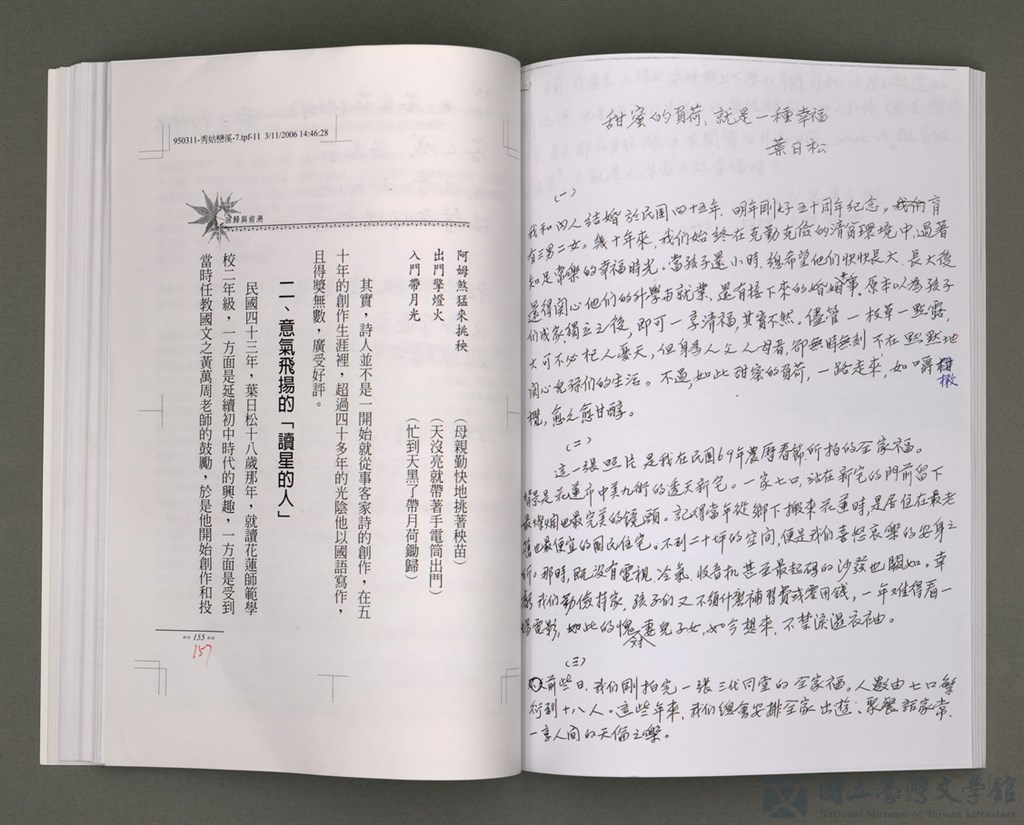 950311-秀姑巒溪-7.tpf-11 3/11/2006 14:46:28
回歸與前溯
阿姆煞猛來挑秧 (母親勤快地挑著秧苗)
出門擎燈火 (天沒亮就帶著手電筒出門)
入門帶月光 (忙到天黑了帶月荷鋤歸)
其實,詩人並不是一開始就從事客家詩的創作,在五
十年的創作生涯裡,超過四十多年的光陰他以國語寫作,
且得獎無數,廣受好評。
二、意氣飛揚的「讀星的人」
民國四十三年,葉日松十八歲那年,就讀花蓮師範學
校二年級,一方面是延續初中時代的興趣,一方面是受到
當時任教國文之黃萬周老師的鼓勵,於是他開始創作和投
155
157
甜蜜的負荷,就是一種幸福
葉日松
(一)
我和內人結婚於民國四十五年,明年剛好五十周年紀念。我們育
有三男二女。幾十年來,我們始終在克勤克儉的清貧環境中,過著
知足常樂的幸福時光。當孩子還小時,總希望他們快快長大,長大後
還得關心他們的升學與就業,還有接下來的婚姻事。原本以為孩子
們成家獨立之後,即可一享清福,其實不然。儘管一枝草一點露,
大可不必杞人憂天,但身為人父人母者,卻無時無刻不在默默地
關心兒孫們的生活。不過,如此甜蜜的負荷,一路走來,如嚼橄
欖,愈久愈甘醇。
(二)
這一張照片是我在民國69年農曆春節所拍的全家福。
背景是花蓮市中美九街的透天新宅。一家七口,站在新宅的門前留下
最燦爛也最完美的鏡頭。記得當年從鄉下搬來花蓮時,是居住在最老
舊也最便宜的國民住宅。不到二十坪的空間,便是我們喜怒哀樂的安身之
所。那時,既沒有電視、冷氣、收音机甚至最起码的沙發也闕如。幸
我們勤儉持家,孩子們又不須什麼補習費或零用錢,一年难得看一
場電影,如此的愧對妻兒子女,如今想來,不禁淚溫衣袖。
(三)
前些日,我們剛拍完一張三代同堂的全家福。人數由七口繁
衍到十八人。這些年來,我們總會安排全家出遊、聚餐話家常,
一享人間的天倫之樂。
國立臺灣文學館
National Museum of Taiwan Literature